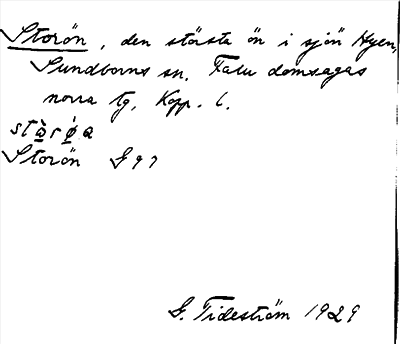 Storön, den största ön i sjön Hyen,
Sundborns sn. Falu domsagas
norra tg. Kopp. l.
stàrǿa
Storön G 97
G. Tideström 1929